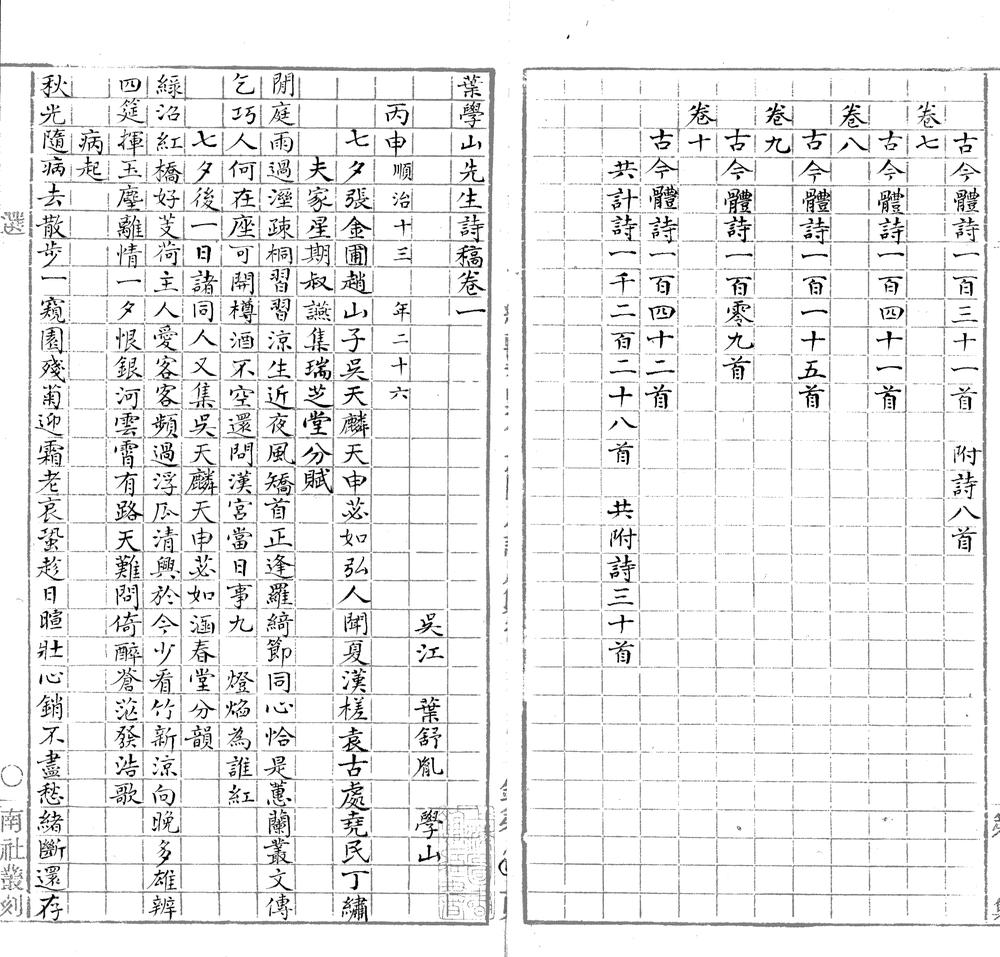 卷七
古今體詩一百三十一首 附詩八首
卷八
古今體詩一百四十一首
卷九
古今體詩一百一十五首
卷十
古今體詩一百零九首
古今體詩一百四十二首
共計詩一千二百二十八首 共附詩三十首
葉學山先生詩稿卷一
吳江 葉舒胤 學山
丙申順治十三年二十六
七夕張金圃趙山子吳天麟天申苾如弘人聞夏漢槎袁古處堯民丁繡
夫家星期叔讌集瑞芝堂分賦
閒庭雨過溼疎桐習習涼生近夜風矯首正逢羅綺節同心恰是蕙蘭叢文傳
乞巧人何在座可開樽酒不空還問漢宮當日事九 燈焰為誰紅
七夕後一日諸同人又集吳天麟天申苾如涵春堂分韻
綠沼紅橋好芰荷主人愛客客頻過浮瓜清興於今少看竹新涼向晚多雄辨
四筵揮玉麈離情一夕恨銀河雲霄有路天難問倚醉蒼茫發浩歌
病起
秋光隨病去散步一窺園殘菊迎霜老哀蛩趁日暄壯心銷不盡愁緒斷還存
選
南社叢刻